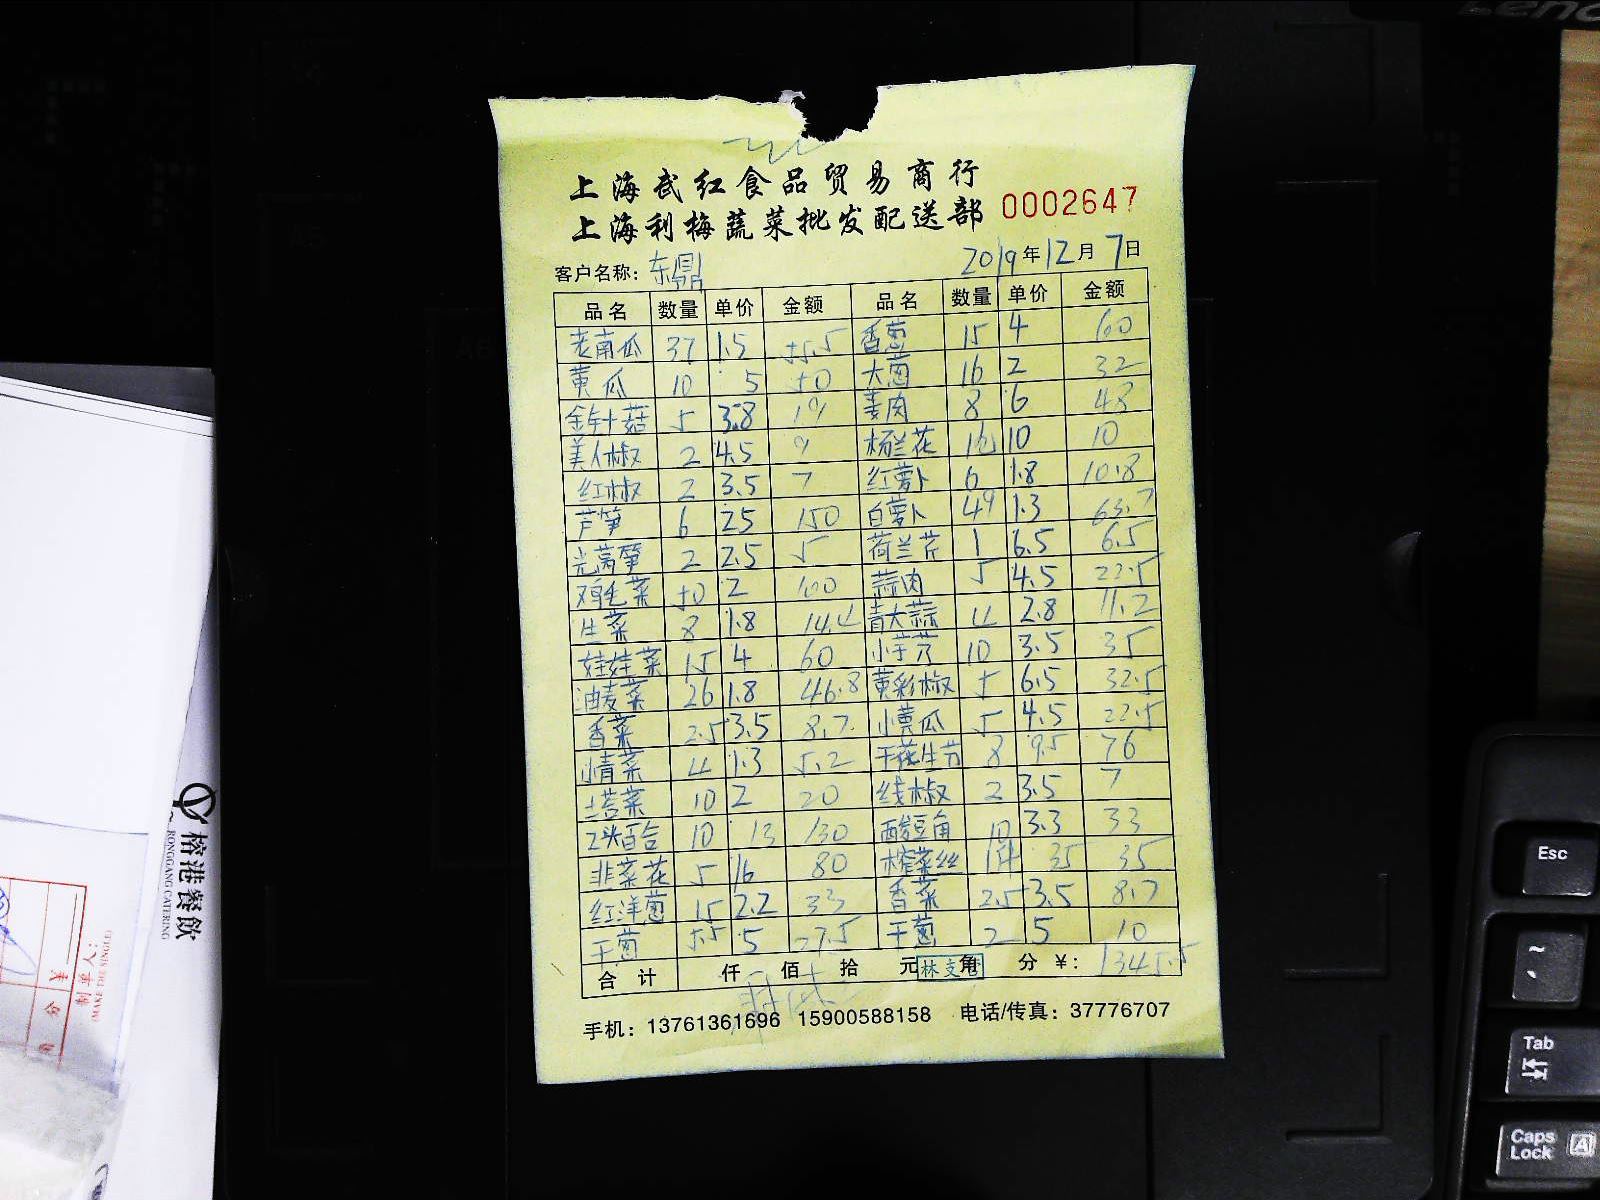 Lenovo
上海武红食品贸易商行
上海利梅蔬菜批发配送部
0002647
客户名称：东鼎 2019年12月7日
品名 数量 单价 金额 品名 数量 单价 金额
老南瓜 37 1.5 55.5 香葱 15 4 60
黄瓜 10 5 50 大葱 16 2 32
金针菇 5 3.8 19 姜肉 8 6 48
美人椒 2 4.5 9 杨兰花 10 10
红椒 2 3.5 7 红萝卜 6 1.8 10.8
芦笋 6 25 150 白萝卜 49 1.3 63.7
光莴笋 2 2.5 5 荷兰芹 1 6.5 6.5
鸡毛菜 50 2 100 蒜肉 5 4.5 22.5
生菜 8 1.8 14.4 青大蒜 4 2.8 11.2
娃娃菜 15 4 60 小芋艿 10 3.5 35
油麦菜 26 1.8 46.8 黄彩椒 5 6.5 32.5
香菜 2.5 3.5 8.7 小黄瓜 5 4.5 22.5
小青菜 4 1.3 5.2 干花生 8 9.5 76
塔菜 10 2 20 线椒 2 3.5 7
2头百合 10 13 130 酸豆角 10 3.3 33
韭菜花 5 16 80 榨菜丝 1件 35 35
红洋葱 15 2.2 33 香菜 2.5 3.5 8.7
干葱 5.5 5 27.5 干葱 2 5 10
合计 仟 佰 拾 元 角 分 ￥： 1345.5
手机：13761361696 15900588158 电话/传真：37776707
榕港餐飲
RONGGANG CATERING
Esc
~
Tab
Caps Lock A